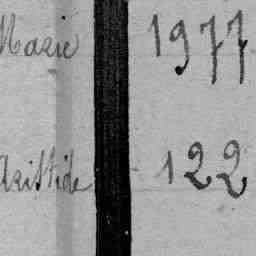 Marie 1977
Aristide 122